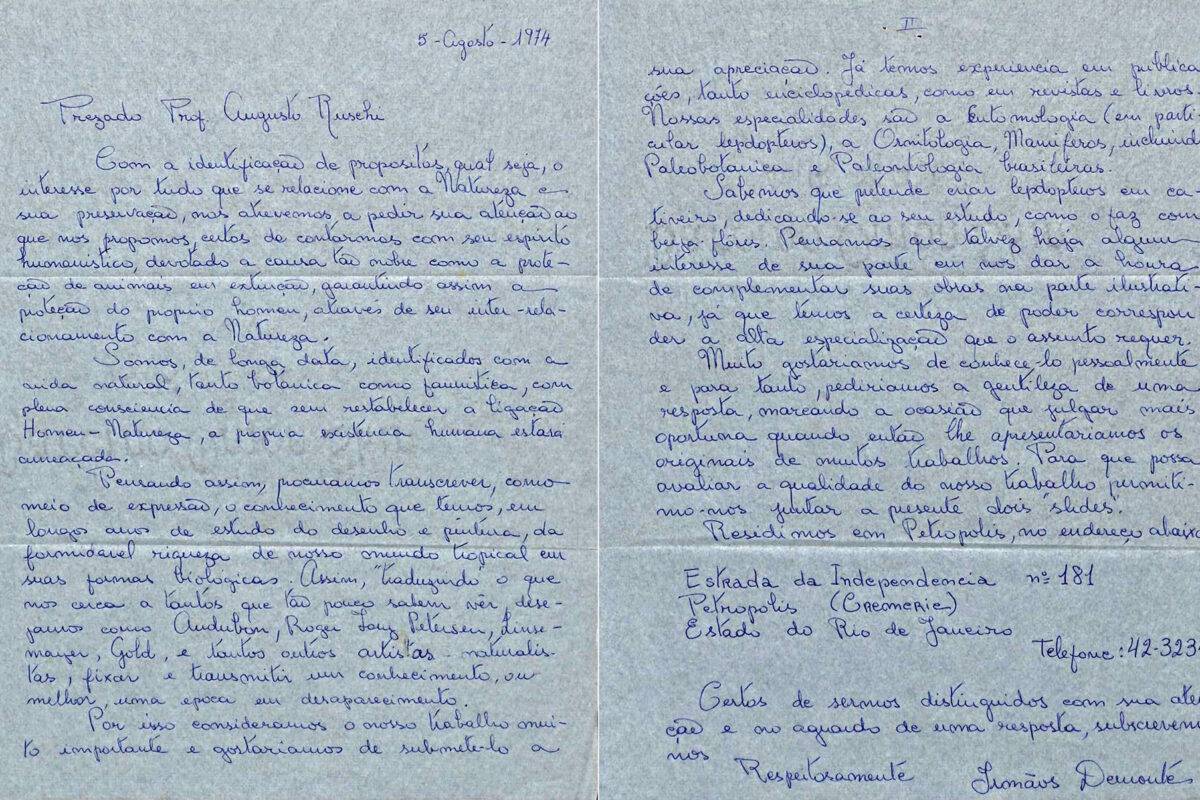 5 - Agosto - 1974
Prezado Prof. Augusto Ruschi
Com a identificação de propositos, qual seja, o
interesse por tudo que se relacione com a Natureza e
sua preservação, nos atrevemos, a pedir sua atenção ao
que nos propomos, certos de contarmos com seu espirito
humanistico, devotado a causa tão nobre como a prote-
ção de animais em extinção, garantindo assim a
proteção do proprio homem, através de seu inter-rela-
cionamento com a Natureza.
Somos, de longa data, identificados com a
vida natural, tanto botânica como faunistica, com
plena consciencia de que sem restabelecer a ligação
Homem-Natureza, a propria existência humana estará
ameaçada.
Pensando assim, procuramos transcrever, como
meio de expressão, o conhecimento que temos, em
longos anos de estudo do desenho e pintura, da
formidavel riqueza de nosso mundo tropical em
suas formas biologicas. Assim, "traduzindo" o que
nos cerca a tantos que tão pouco sabem vêr, dese-
jamos como Audubon, Roger Tory Petersen, Linse-
mayer, Gold, e tantos outros artistas naturalis-
tas, fixar e transmitir um conhecimento, ou
melhor, uma epoca em desaparecimento.
Por isso consideramos o nosso trabalho mui-
to importante e gostariamos de submete-lo a
II
sua apreciação. Já temos experiencia em publica
ções, tanto enciclopédicas, como em revistas e livros.
Nossas especialidades são a Entomologia (em parti-
cular lepdopteros), a Ornitologia, Mamiferos, incluind
Paleobotanica e Paleontologia brasileiras.
Sabemos que pretende criar lepdopteros em ca-
tiveiro, dedicando-se ao seu estudo, como o faz com
beija-flôres. Pensamos que talvez haja algum
interesse de sua parte em nos dar a honra
de complementar suas obras na parte ilustrati-
va, já que temos a certeza de poder correspon
der a alta especialização que o assunto requer.
Muito gostariamos de conhece-lo pessoalmente
e para tanto, pediriamos a gentileza de uma
resposta, marcando a ocasião que julgar mais
oportuna quando então lhe apresentariamos os
originais de muitos trabalhos. Para que possa
avaliar a qualidade do nosso trabalho permiti-
mo-nos juntar a presente dois "slides".
Residimos em Petropolis, no endereço abaixo
Estrada da Independencia nº 181
Petropolis (Cremerie)
Estado do Rio de Janeiro
Telefone: 42-323
Certos de sermos distinguidos com sua aten
ção e no aguardo de uma resposta, subscrevem
nos
Respeitosamente Irmãos Demonte